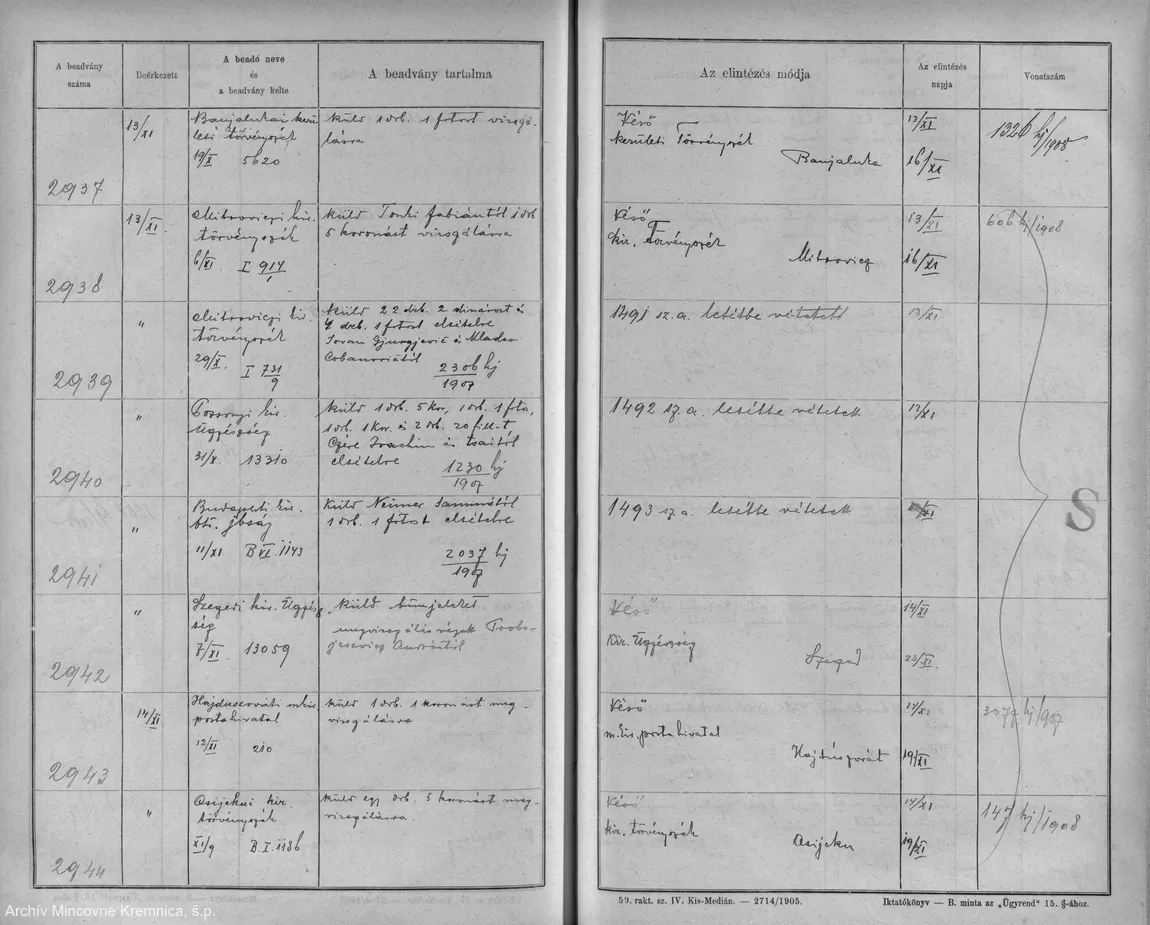 A beadvány
száma
Beérkezett
A beadó neve
és
a beadvány kelte
A beadvány tartalma
2937
13/XI
Banjalukai kerü-
leti törvényszék
19/X 5620
küld 1 drb. 1 frtost vizsgá-
lásra
2938
13/XI
Mitroviczi kir.
törvényszék
6/XI I 914
küld Tonki Fabiántól 1 drb
5 koronást vizsgálásra
2939
"
Mitroviczi kir.
törvényszék
29/X. I 731/9
küld 22 drb. 2 dinárost és
4 drb. 1 frtost elsitelre
Jovan Gjurgjević és Mladen
Cobanovićtól
2306 hj
1907
2940
"
Pozsonyi kir.
Ügyészség
31/X 13310
küld 1 drb. 5 kor, 1 drb. 1 frto,
1 drb. 1 kor. és 2 drb. 20 fill-t
Joachim és tsaitól
elsitelre
1230 hj
1907
2941
"
Budapesti kir.
btő. jbság
11/XI B VI. 1143
küld Neimer
1 drb. 1 frtost elsitelre
2037 hj
1907
2942
"
Szegedi kir. Ügyész-
ség
7/XI. 13059
küld bűnjeleket
megvizsgálás végett
Andrástól
2943
14/XI
m. kir.
postahivatal
12/XI 210
küld 1 drb. 1 koronást meg-
vizsgálásra
2944
"
Osijekui kir.
törvényszék
XI/9 B. I. 1186
küld egy drb. 5 koronást meg-
vizsgálásra.
Az elintézés módja
Az elintézés
napja
Vonatszám
Késő
kerületi Törvényszék
Banjaluka
13/XI
16/XI
1326 hj/1908
Késő
kir. Törvényszék
Mitrovicz
13/XI
16/XI
606 hj/1908
1491 sz. a. letétbe vétetett
13/XI
1492 sz. a. letétbe vétetett
13/XI
1493 sz. a. letétbe vétetett
S
Késő
Kir. Ügyészség
Szeged
14/XI
23/XI.
Késő
m. kir. postahivatal
Hajdúszovát
14/XI
19/XI
3077 hj/907
Késő
kir. törvényszék
Osijeku
14/XI
19/XI
147 hj/1908
59. rakt. sz. IV. Kis-Medián. — 2714/1905.
Iktatókönyv — B. minta az „Ügyrend" 15. §-ához.
Archív Mincovne Kremnica, š.p.